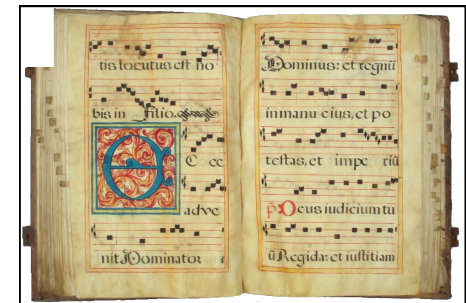 tis locutus est no
bis in Filio. ghugh
E C ce
adve
nit Dominator
Dominus: et regnū
in manu eius, et po
testas, et impe riū
p̃. Deus iudicium tu
ū Regi da: et iustitiam